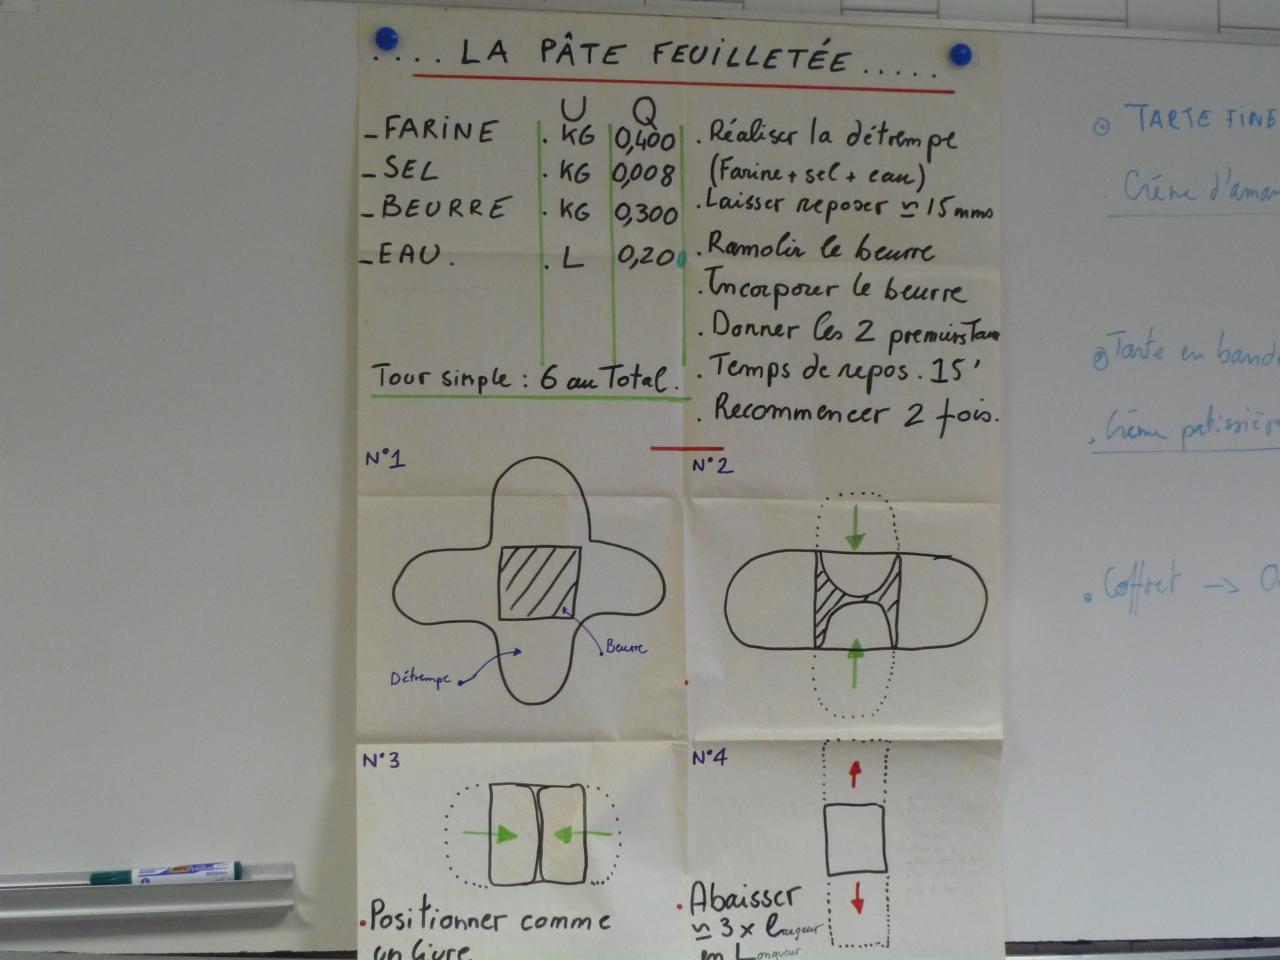 .... LA PÂTE FEUILLETÉE .....
U Q
- FARINE . KG 0,400
- SEL . KG 0,008
- BEURRE . KG 0,300
- EAU . . L 0,200
Tour simple : 6 au Total.
. Réaliser la détrempe
(Farine + sel + eau)
. Laisser reposer ≃ 15 mms
. Ramolir le beurre
. Incorporer le beurre
. Donner les 2 premiers Tour
. Temps de repos . 15'
. Recommencer 2 fois.
N°1
Détrempe
Beurre
N°2
N°3
. Positionner comme
un livre
N°4
. Abaisser
≃ 3 x largeur
en Longueur
TARTE FINE
. Crème d'aman
Tarte en band
. Crème patissièr
. Coffret →